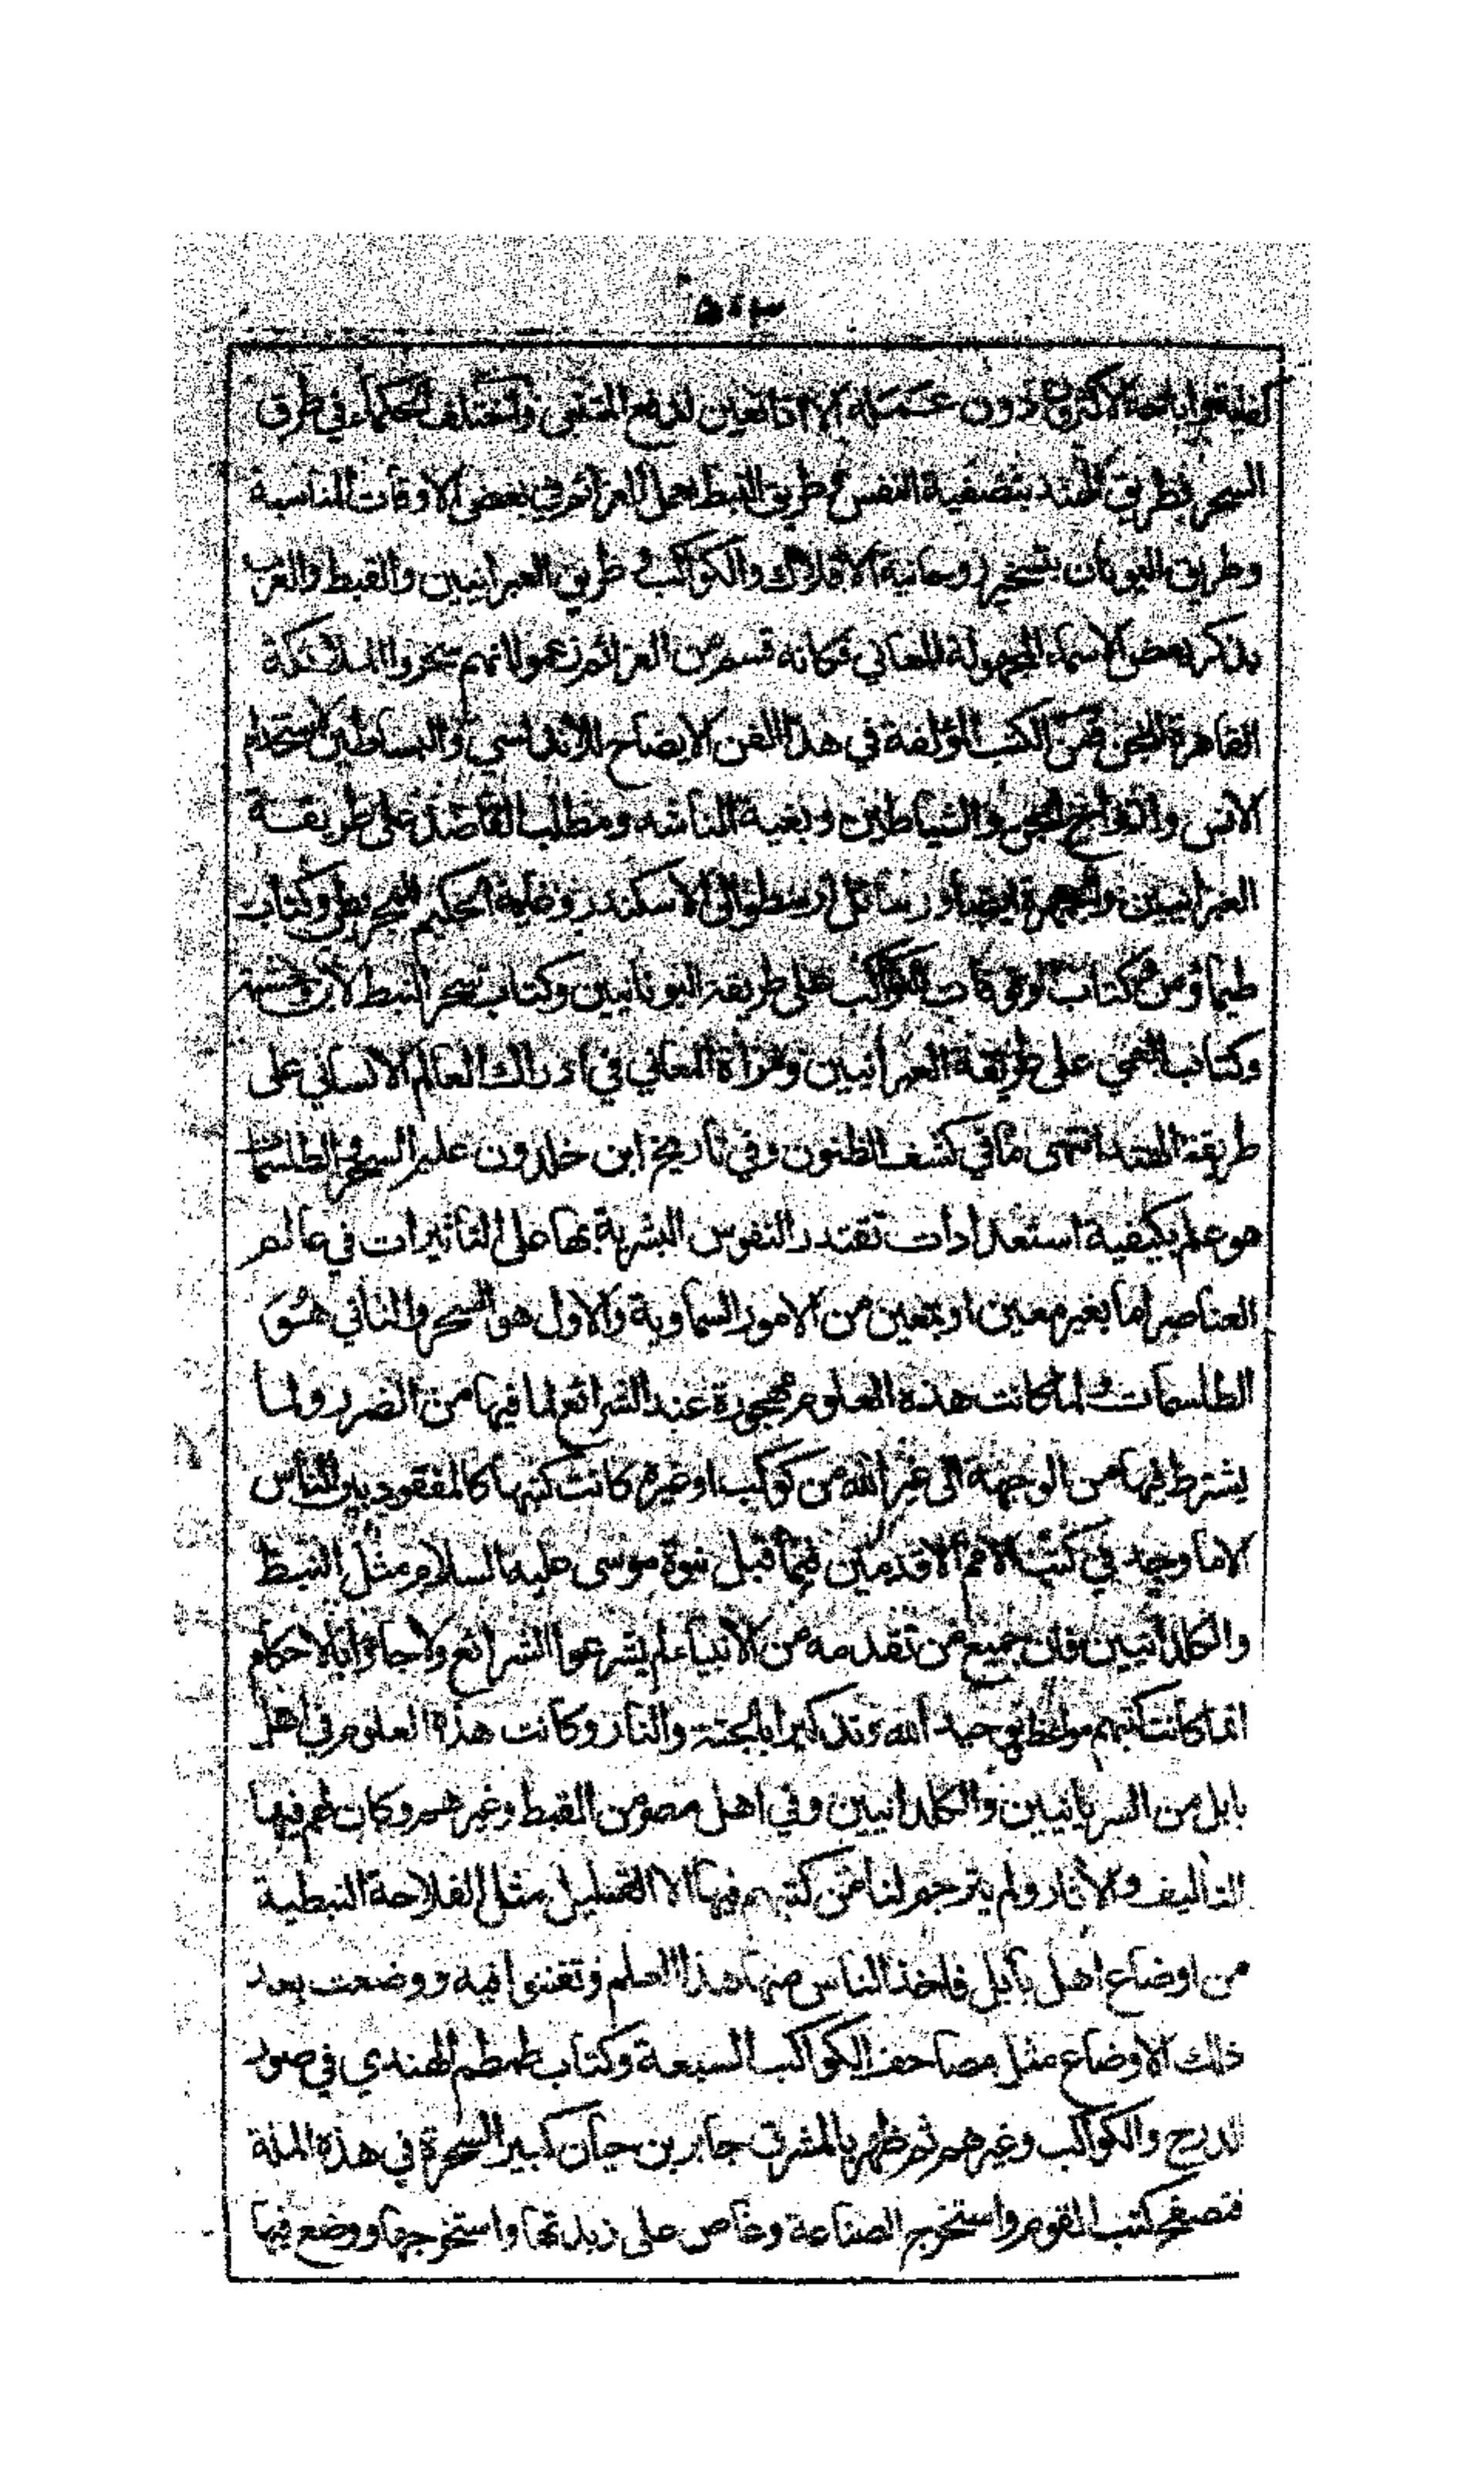 ٥٠٣
الاكثرون دون عمله الا اذا تعين لدفع المتنبي واختلف الحكماء في طرق
السحر فطريق الهند بتصفية النفس وطريق النبط بعمل العزائم في بعض الاوقات المناسبة
وطريق اليونان بتسخير روحانية الافلاك والكواكب وطريق العبرانيين والقبط والعرب
بذكر بعض الاسماء المجهولة المعاني فكانه قسم من العزائم زعموا انهم سخروا الملائكة
القاهرة للجن فمن الكتب المؤلفة في هذا الفن الايضاح للاندلسي والبساطين لاستخدام
الانس وارواح الجن والشياطين وبغية الناشد ومطلب القاصد على طريقة
العبرانيين والجمهرة ايضا ورسائل ارسطو الى الاسكندر وغاية الحكيم للمجريطي وكتاب
طيماؤس وكتاب الوقوفات للكواكب على طريقة اليونانيين وكتاب سحر النبط لابن وحشية
وكتاب العمي على طريقة العبرانيين ومرآة المعاني في ادراك العالم الانساني على
طريقة الهند انتهى ما في كشف الظنون وفي تاريخ ابن خلدون علم السحر والطلسمات
هو علم بكيفية استعدادات تقتدر النفوس البشرية بها على التاثيرات في عالم
العناصر اما بغير معين او بمعين من الامور السماوية والاول هو السحر والثاني هو
الطلسمات ولما كانت هذه العلوم مهجورة عند الشرائع لما فيها من الضرر ولما
يشترط فيها من الوجهة الى غير الله من كوكب او غيره كانت كتبها كالمفقود بين الناس
الا ما وجد في كتب الامم الاقدمين فيما قبل نبوة موسى عليه السلام مثل النبط
والكلدانيين فان جميع من تقدمه من الانبياء لم يشرعوا الشرائع ولا جاؤا بالاحكام
انما كانت كتبهم مواعظ توحيد الله وتذكيرا بالجنة والنار وكانت هذه العلوم في اهل
بابل من السريانيين والكلدانيين وفي اهل مصر من القبط وغيرهم وكان لهم فيها
التأليف والاثار ولم يترجم لنا من كتبهم فيها الا القليل مثل الفلاحة النبطية
من اوضاع اهل بابل فاخذ الناس منها هذا العلم وتفننوا فيه ووضعت بعد
ذلك الاوضاع مثل مصاحف الكواكب السبعة وكتاب طمطم الهندي في صور
الدرج والكواكب وغيرهم ثم ظهر بالمشرق جابر بن حيان كبير السحرة في هذه الملة
فتصفح كتب القوم واستخرج الصناعة وغاص على زبدتها واستخرجها ووضع فيها